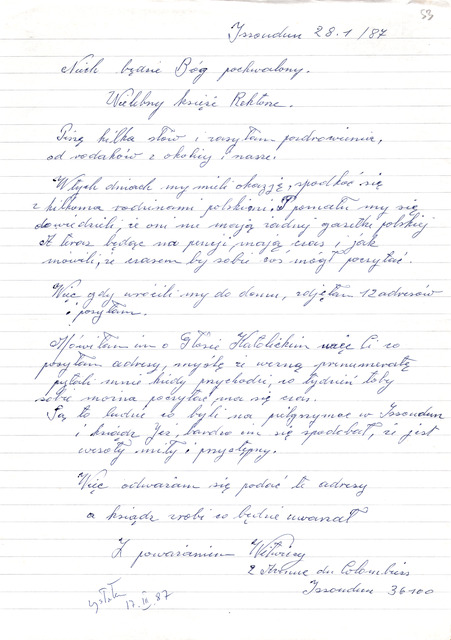 53
Issoudun 28.1/87
Niech będzie Bóg pochwalony.
Wielebny księże Rektorze.
Piszę kilka słów i zasyłam pozdrowienia,
od rodaków z okolicy i nasze.
W tych dniach my mieli okazję, spodkać się
z kilkoma rodzinami polskimi. I pomału my się
dowiedzieli, że oni nie mają żadnej gazetki polskiej
A teraz będąc na pensji, mają czas i jak
mówili, że czasem by sobie coś mógł poczytać.
Więc gdy wrócili my do domu, zdjęłam 12 adresów
i posyłam.
Mówiłam im o Głosie Katolickim więc Ci co
posyłam adresy, myślę że wezmą prenumeratę
pytali mnie kiedy przychodzi, co tydzień toby
sobie można poczytać, ma się czas.
Są to ludzie co byli na pielgrzymce w Issoudun
i ksiądz Jeż, bardzo im się spodobał, że jest
wesoły miły i przystępny.
Więc odważam się podać te adresy
a ksiądz zrobi co będzie uważał
Z poważaniem
2 Avenue du Colombier
Issoudun 36100
17.III.87